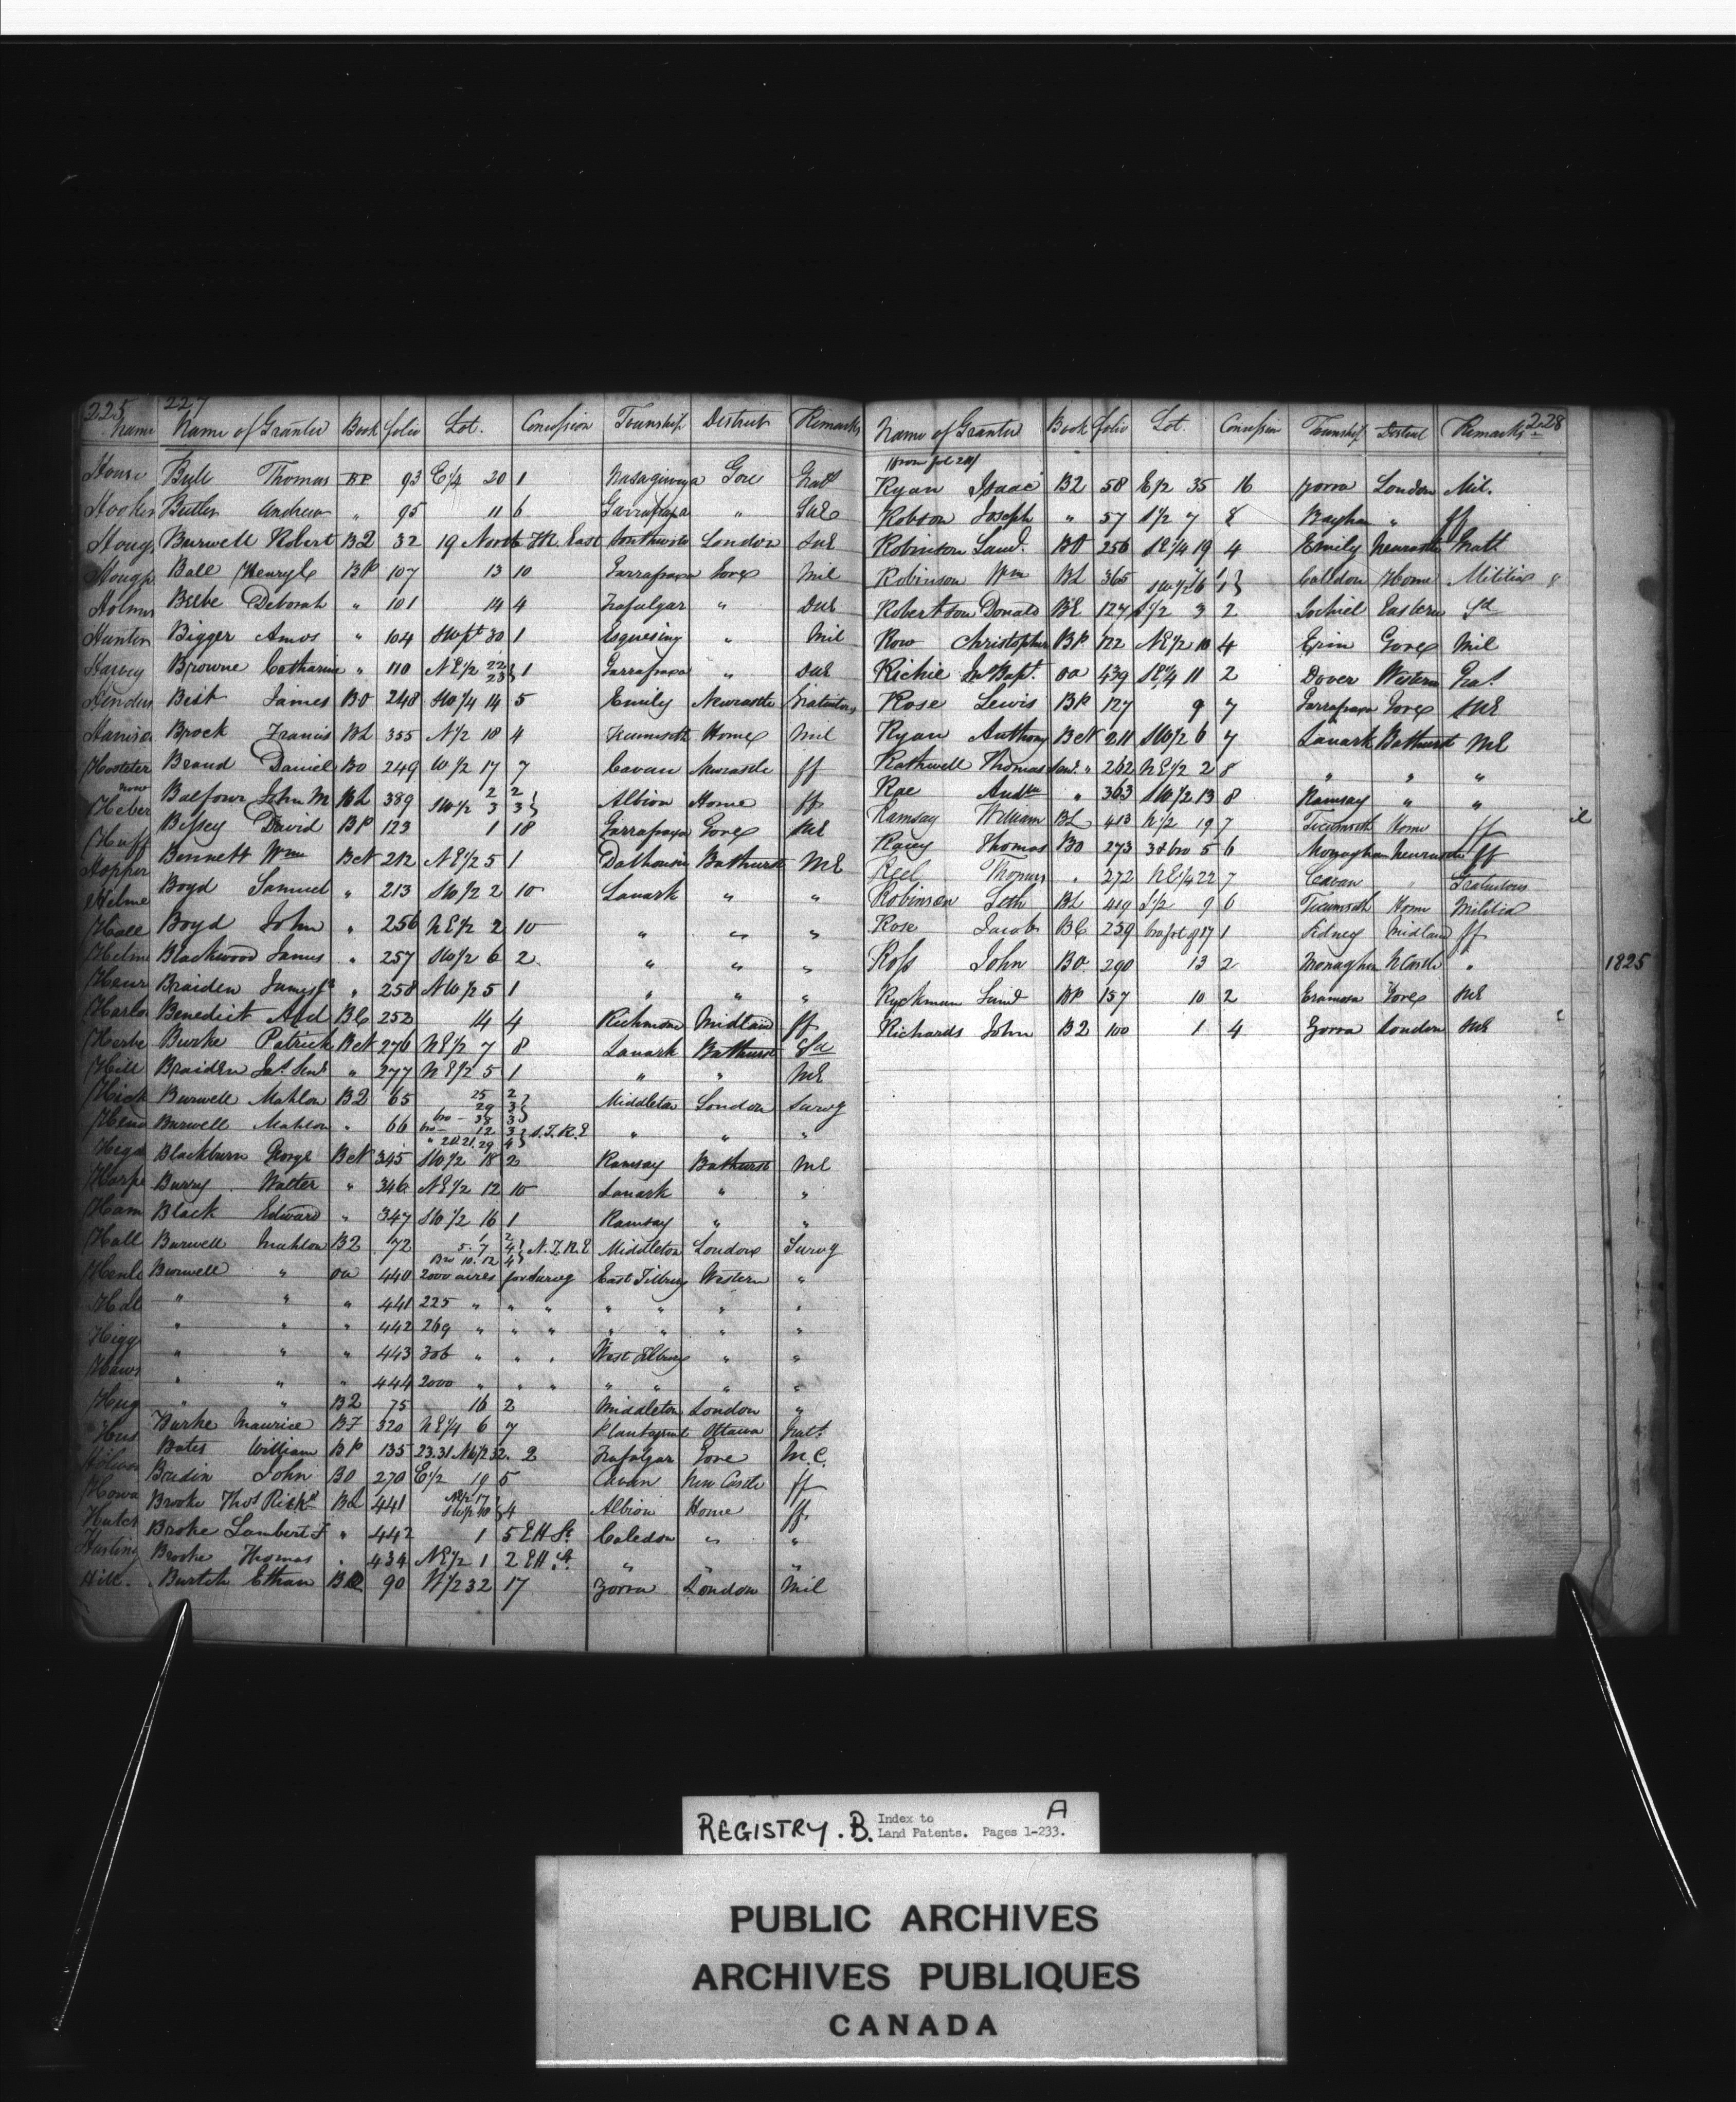 225 227
Name Name of Grantee Book folio Lot. Concession Township District Remarks
House Bull Thomas BP 93 E1/4 20 1 Nasagiweya Gore Grat
Hooker Butler Andrew " 95 11 6 Garrafraxa " SUE
Houg Burwell Robert B2 32 19 North TR. East Southwold London SUE
Hough Ball Henry BP 107 13 10 Garrafraxa Gore Mil
Holmes Beebe Deborah " 101 14 4 Trafalgar " DUE
Hunter Bigger Amos " 104 SWpt 30 1 Esquesing " Mil
Harvey Browne Catharine " 110 NE1/2 22 23 } 1 Garrafraxa " DUE
Hender Best James BO 248 SW1/4 14 5 Emily Newcastle Gratuitous
Harriso Brock Francis BL 355 N1/2 18 4 Tecumseth Home Mil
Hosteter Beand Daniel BO 249 W1/2 17 7 Cavan Newcastle ff
Heber Balfour John M BL 389 SW1/2 2 3 2 3 } Albion Home ff
Huff Bessey David BP 123 1 18 Garrafraxa Gore SUE
Hopper Bennett Wm BcN 212 NE1/2 5 1 Dalhousie Bathurst ME
Helme Boyd Samuel " 213 SW1/2 2 10 Lanark " "
Hall Boyd John " 256 NE1/2 2 10 " " "
Helme Blackwood James " 257 SW1/2 6 2 " " "
Henr Braiden James Jr " 258 NW1/2 5 1 " " "
Harlo Benedict And BC 252 14 4 Richmond Midland ff
Herbe Burke Patrick BcN 276 NE1/2 7 8 Lanark Bathurst Sd
Hill Braiden Jas. Senr " 277 NE1/2 5 1 " " ME
Hick Burwell Mahlon B2 65 25 29 2 3 } Middleton London Survg
Hend Burwell Mahlon " 66 bro - 38 bro - 12 " 20.21.29 3 3 4 } S.T.R.E " " "
Higg Blackburn George BcN 345 SW1/2 18 2 Ramsay Bathurst ME
Harpe Burry Walter " 346 NE1/2 12 10 Lanark " "
Ham Black Edward " 347 SW1/2 16 1 Ramsay " "
Hall Burwell Mahlon B2 72 1 5.7 Bro 10.12 2 4 4 } N.T.R.E Middleton London Survg
Henl Burwell " oa 440 2000 acres for Surveg East Tilbury Western "
Hall " " " 441 225 " " " " " " "
Higg " " " 442 269 " " " " " " "
Haws " " " 443 306 " " " West Tilbury " "
" " " 444 2000 " " " " " " "
Hug " " B2 75 16 2 Middleton London "
Hus Burke Maurice BF 320 NE1/4 6 7 Plantagenet Ottawa Grat.
Bates William BP 135 23.31.NW1/2 32. 2 Trafalgar Gore M.C.
Howa Boudin John BO 270 E1/2 19 5 Cavan New Castle ff
Hutch Brooke Thos Rickd BL 441 NE1/2 17 SW1/2 18 } 4 Albion Home ff
Hasting Broke Lambert F " 442 1 5 EHSt Caledon " "
Brooke Thomas " 434 NE1/2 1 2 EHSt " " "
Hill. Burtch Ethan B2 90 N1/2 32 17 Zorra London Mil
228
Name of Grantee Book folio Lot Concession Township District Remarks
from fol 211
Ryan Isaac B2 58 E1/2 35 16 Zorra London Mil.
Robson Joseph " 57 S1/2 7 8 Bayham " ff
Robinson Saml. BO 256 SE1/4 19 4 Emily Newcastle Gratt
Robinson Wm BL 365 SW1/2 6 1 } Caledon Home Militia
Robertson Donald BE 127 S1/2 3 2 Lochiel Eastern Sd
Row Christopher BP 122 NE1/2 10 4 Erin Gore Mil
Richie Jn Bapt. oa 439 SE1/4 11 2 Dover Western Gra.t
Rose Lewis BP 127 9 7 Garrafraxa Gore SUE
Ryan Anthony BcN 211 SW1/2 6 7 Lanark Bathurst ME
Rathwell Thomas Senr. " 262 NE1/2 2 8 " " "
Rae Andw " 363 SW1/2 13 8 Ramsay " "
Ramsay William BL 413 N1/2 19 7 Tecumseth Home ff
Racey Thomas BO 273 3 & bro 5 6 Monaghan Newcastle ff
Reel Thomas " 272 NE1/4 22 7 Cavan " Gratuitous
Robinson Seth BL 419 S1/2 9 6 Tecumseth Home Militia
Rose Jacob BC 259 bro pt of 17 1 Sidney Midland ff
Ross John BO. 290 13 2 Monaghan NCastle "
1825
Ryckman Saml BP 157 10 2 Eramosa Gore SUE
Richards John B2 100 1 4 Zorra London SUE
REGISTRY. B. Index to Land Patents. Pages 1-233. A
PUBLIC ARCHIVES
ARCHIVES PUBLIQUES
CANADA